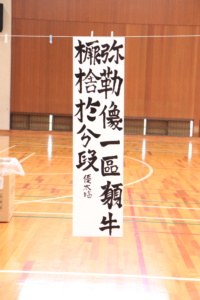 弥勒像一區願牛
橛捨於分段